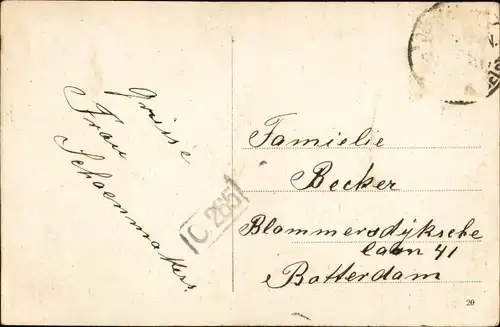 Grüsse
Frau
Schoenmakers
C 265
Familie
Becker
Blommersdijksche
laan 41
Rotterdam
20